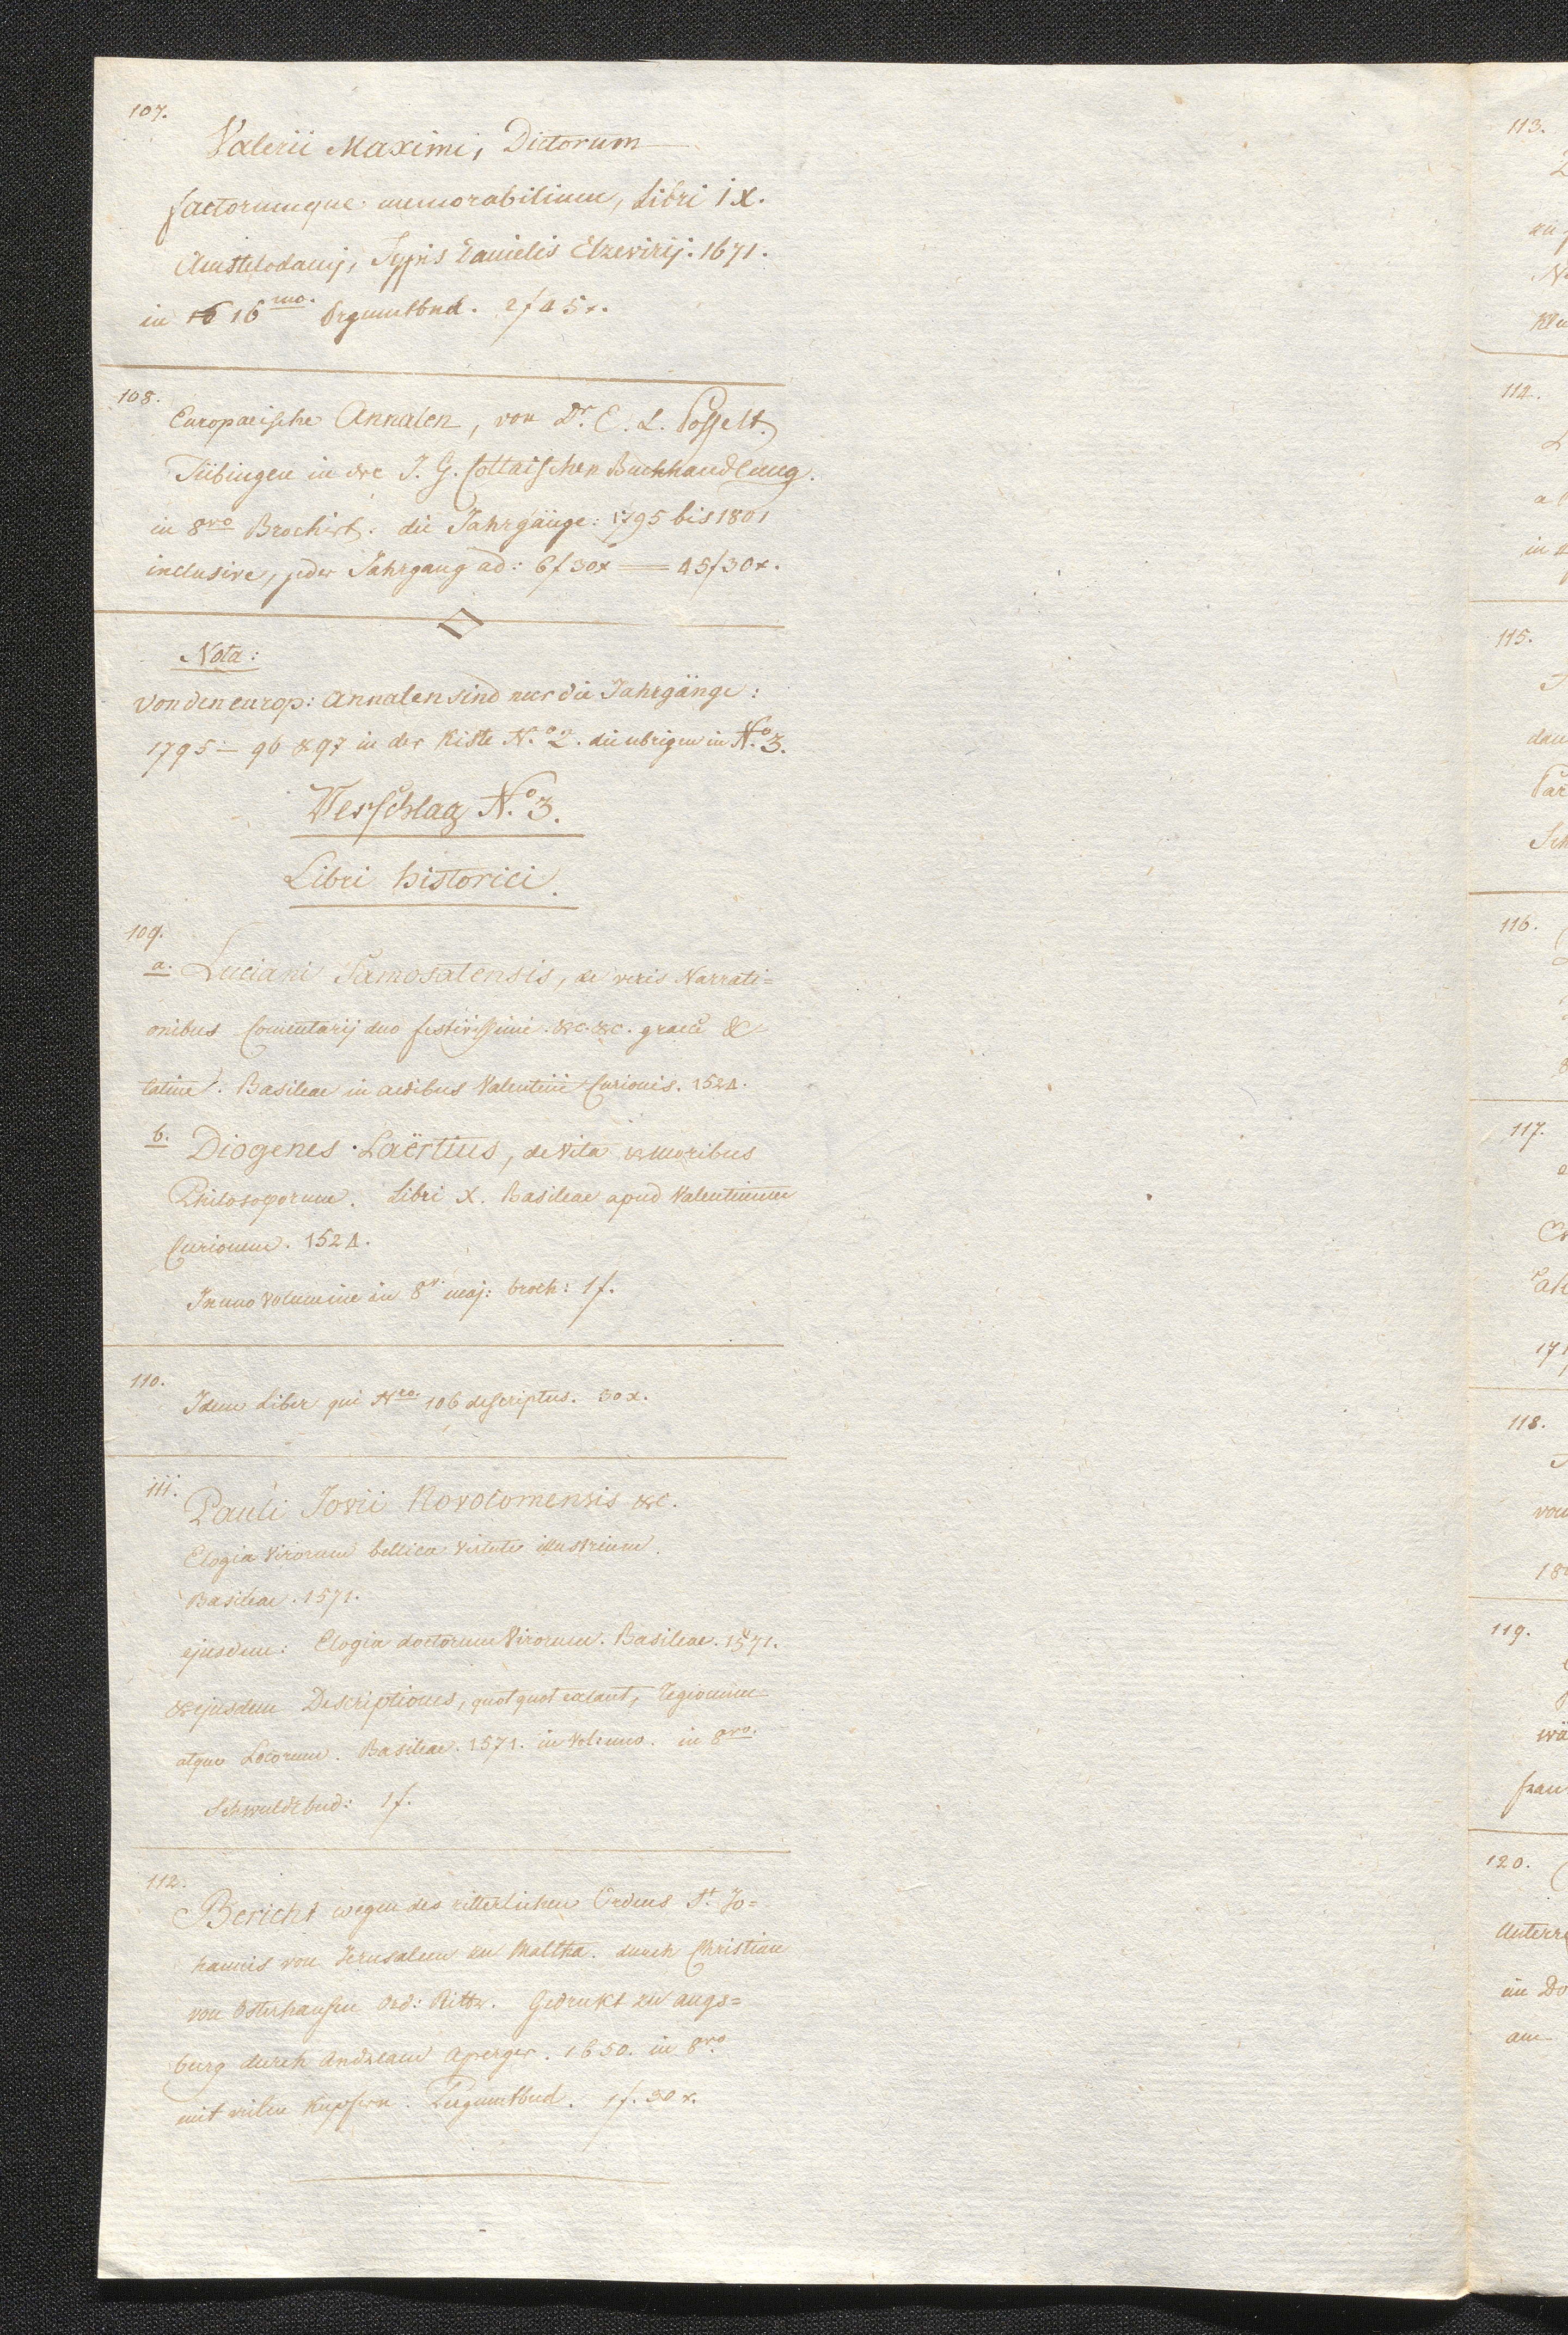 107.
Valerii Maximi, Dictorum
factorumque memorabilium, Libri IX.
Amstelodamj, Typis Danielis Elzevirij. 1671.
in 16 16mo. Prgmntbnd. 2f 45x.
108.
Europaeische Annalen, von Dr. E. L. Posselt.
Tübingen in der J. G. Cottaischen Buchhandlung.
in 8vo Brochirt. die Jahrgänge: 1795 bis 1801
inclusive, jeder Jahrgang ad: 6f 30x = 45f 30x.
Nota:
von den europ: Annalen sind nur die Jahrgänge:
1795 – 96 & 97 in der Kiste N.o 2. die ubrigen in N.o 3.
Verschlag N.o 3.
Libri historici.
109.
a. Luciani Samosatensis, de veris Narrati=
onibus Comentarij duo festivissimi. &c. &c. graece &
latine. Basileae in aedibus Valentini Curionis. 1524.
b. Diogenes Laërtius, de Vita & moribus
Philosoporum. Libri X. Basileae apud Valentinum
Curionum. 1524.
In uno Volumine in 8v. maj: broch: 1f.
110.
Idem Liber qui Nro. 106 descriptus. 30x.
111.
Pauli Jovii Novocomensis &c.
Elogia Virorum bellica Virtute illustrium.
Basileae. 1571.
ejusdem: Elogia doctorum Virorum. Basileae. 1571.
& ejusdem Descriptiones, quotquot extant, regionum
atque Locorum. Basileae. 1571. in Vol: uno. in 8vo.
Schwnldrbnd: 1f.
112.
Bericht wegen des ritterlichen Ordens St. Jo=
hannis von Jerusalem zu Maltha. durch Christian
von Osterhausen Ord: Rittr. Gedrukt zu augs=
burg durch Andream Aperger. 1650. in 8vo.
mit vielen Kupfern. Pergmntbnd. 1f. 30x.
113.
114.
115.
116.
117.
118.
119.
120.